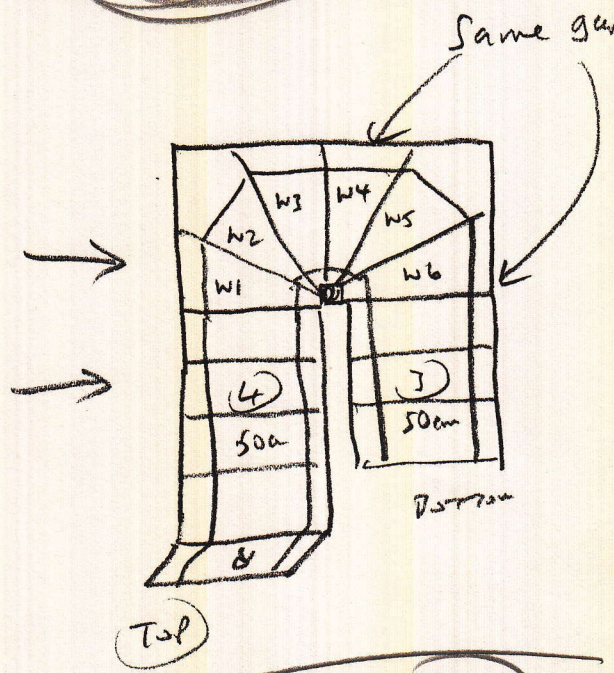 Same
W3 W4
W2 W5
W1 W6
4 3
50cm
Bottom
Top